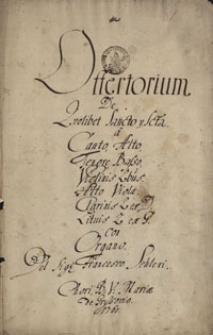 Offertorium
De
Quolibet Sancto y Scta
a
Canto, Alto,
Tenore Basso,
Violinis 2bus
Alto Viola
Clarinis 2 ex D
Lituis 2 ex G.
Con
Organo.
Del Sigl Francesco
Chori B. V. Mariæ
De